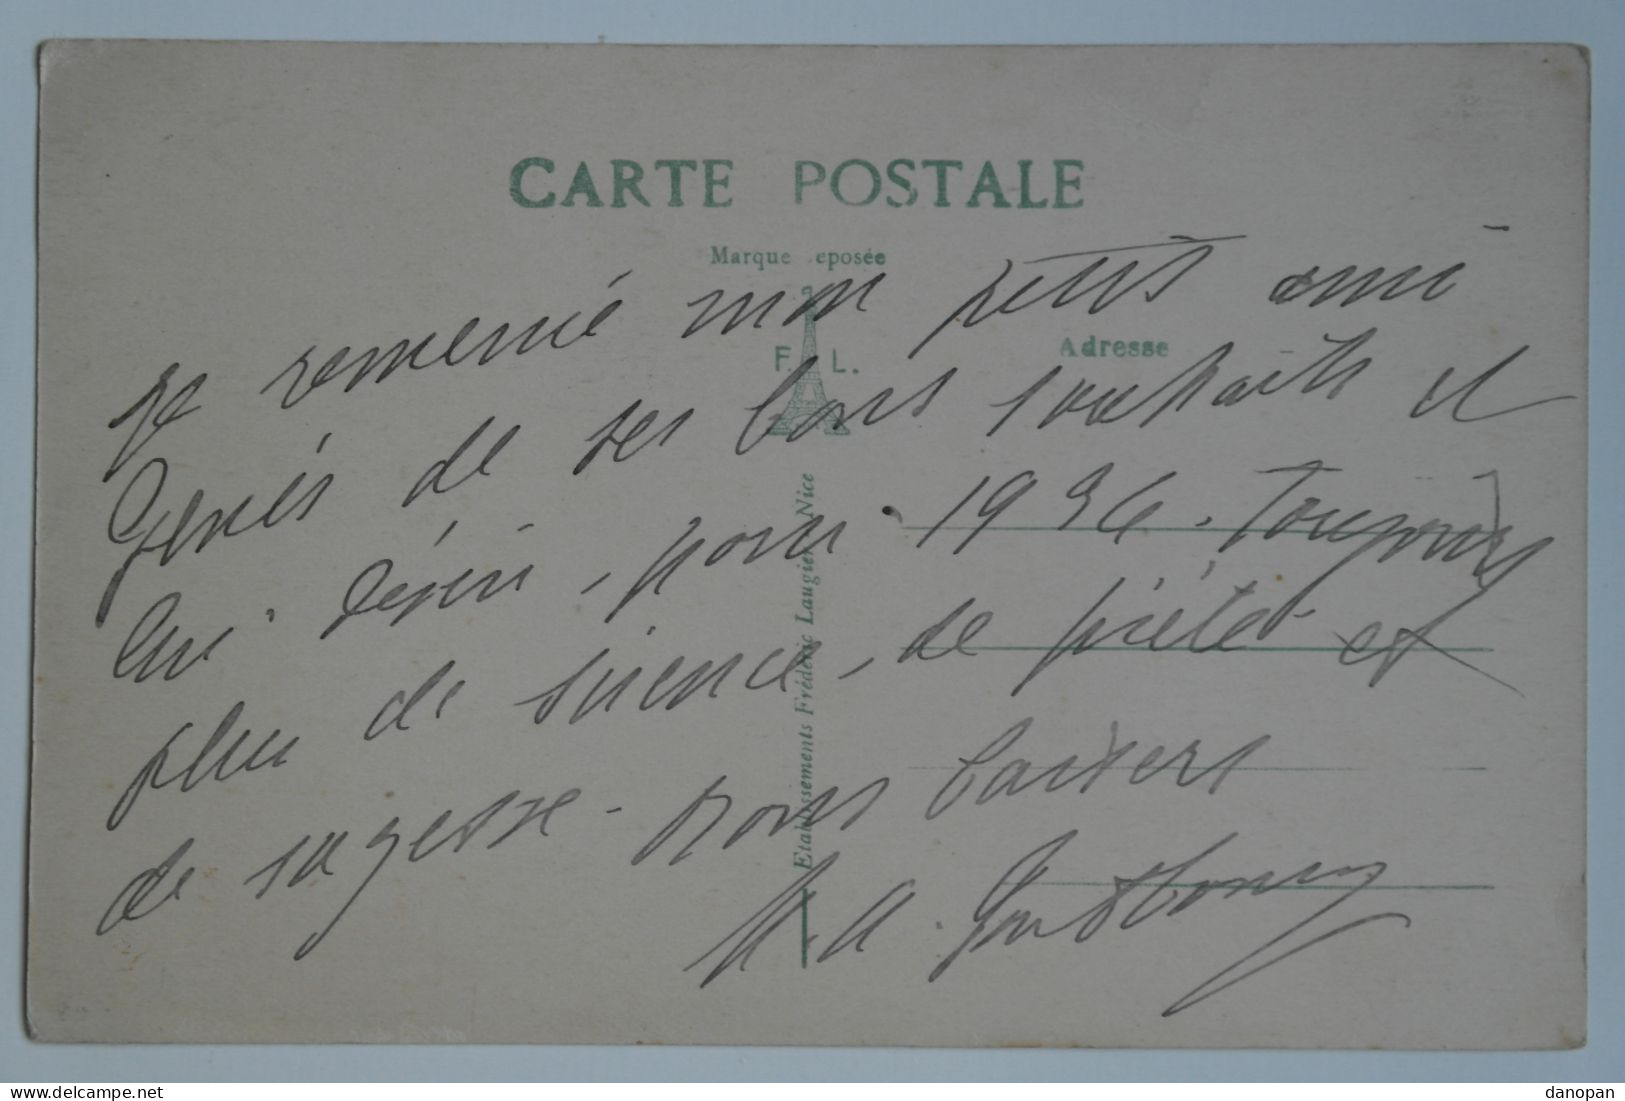 CARTE POSTALE
Marque eposée
F. L.
Adresse
Etablissements Frédéric Laugier, Nice
je remercie mon petits ami
de ses bons souhaits et
lui désire, pour 1936. Toujours
plus de science, de piété et
de sagesse. Bons baisers
danopan
delcampe.net